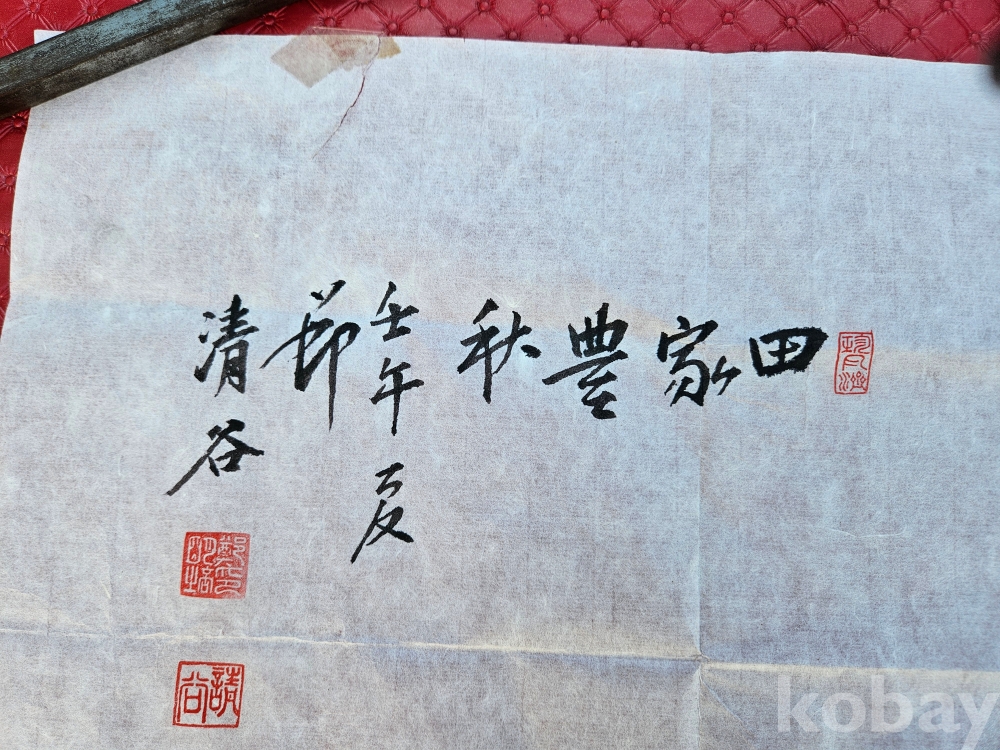 田家豊秋
壬午夏
節
清谷
kobay